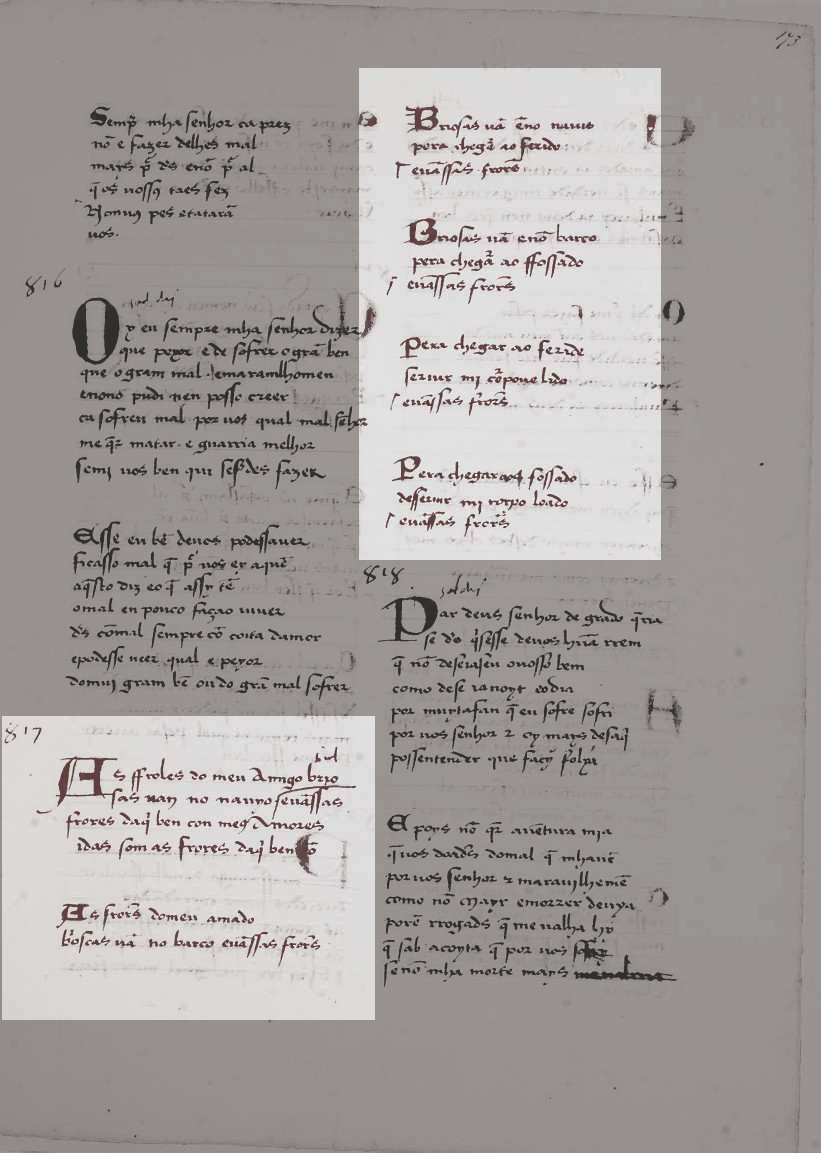 Semp̃ mha senhor ca prez
nõ e fazer delhes mal
mays p̃ d̃s enõ p̃ al
q̃ os uossꝯ taes fez
pes etatarã
uos.
816
O y eu sempre mha senhor dizer
que peyor e de sofrer o grã ben
que o gram mal. emaramlhomen
enono pudi nen posso creer
ca sofreu mal por uos qual mal. senhor
me q̃r matar. e guarria melhor
semj uos ben qui fazer
Asse eu bẽ deuos podessauer
ficasso mal q̃ p̃ uos ey aquẽ
aq̃sto diz eo q̃ assy tẽ
omal en pouco façao uiuer
d̃s cõmal sempre cõ coita damor
epodesse ueer qual e peyor
domuj gram bẽ ou do grã mal sofrer
817
As ffroles do meu Amigo brio
sas uan no nauyo seuãssas
frores daq̃ ben con meꝯ Amores
idas som as frores daq̃ ben cõ
As frores domeu amado
b̃oscas uã no barco euãssas frores
73
Briosas uã ẽno nauio
pera chegẽ ao ferido
euãssas frores
Briosas uã enõ barco
pera chegã ao ffossado
euãssas frores
Pera chegar ao feride
seruir mi cõrpo uelido
euãssas frores
Pera chegar fossado
desseruir mj corpo loado
euãssas frores
818
Par deus senhor de grado q̃ria
se d̃s q̃sesse deuos hũa rrem
q̃ nõ deseiasseu ouosso bem
como dese ia noyt eo dia
por muytafan q̃ eu sofre sofri
por uos senhor ⁊ oy mays desaq̃
possentender que façy folya
E poys nõ q̃r auẽtura mia
q̃ uos doad̃s domal q̃ mhauẽ
por uos senhor ⁊ marauilhemẽ
como nõ moyr emorrer deuya
porẽ rrogad̃s q̃ me ualha hy
q̃ sab acoyta q̃ por uos
se nõ mha morte mays